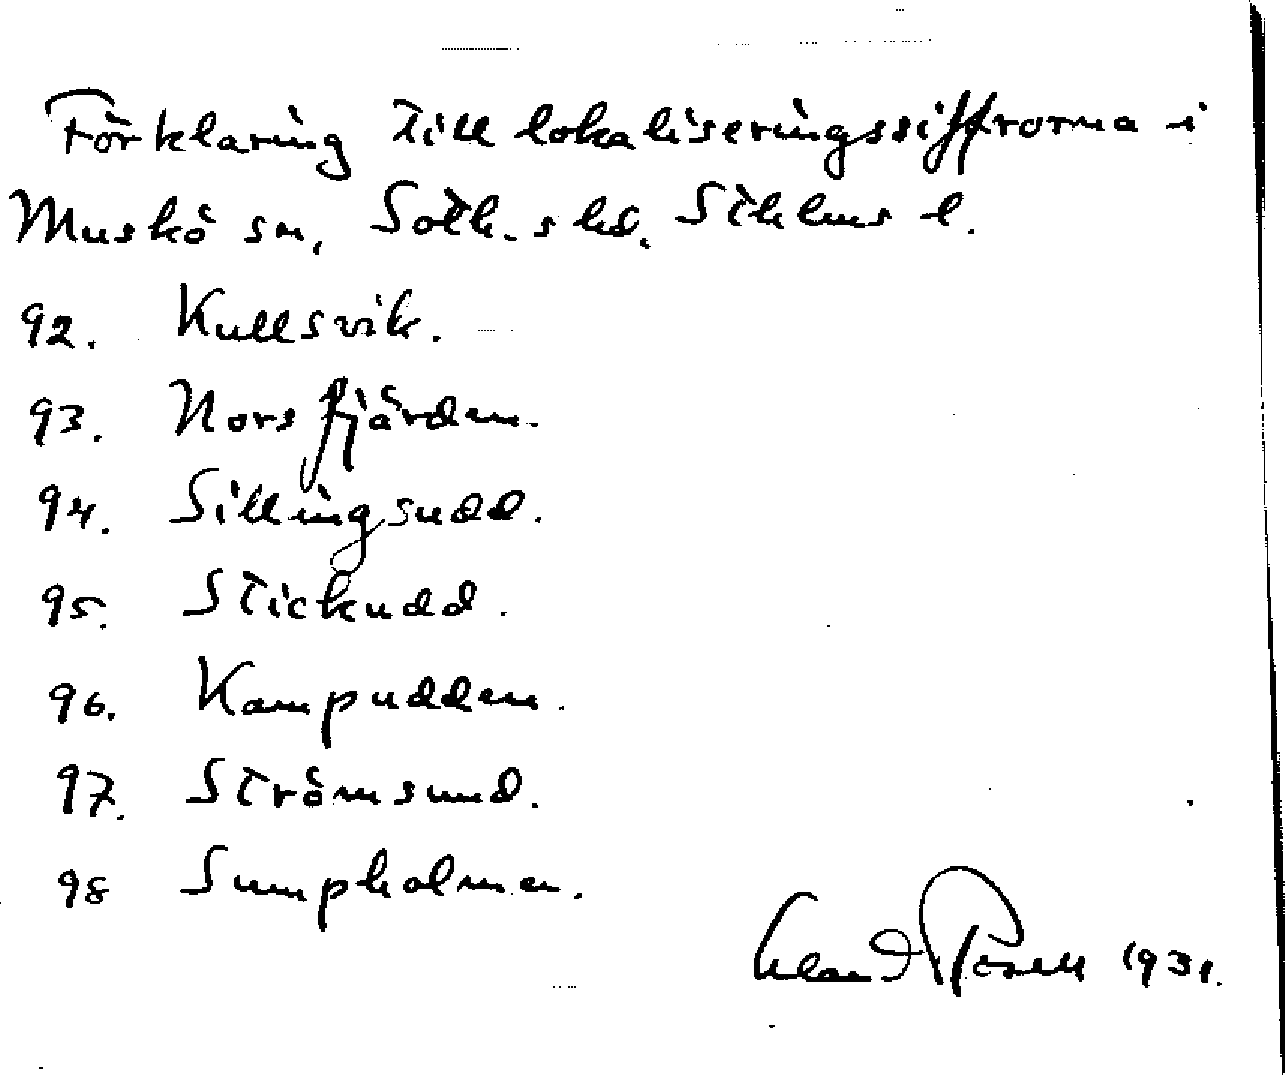 Förklaring till lokaliseringssiffrorna i
Muskö sn, Soth. skd. Sthlms l.
92. Kullsvik.
93. Norsfjärden.
94. Sillingsudd.
95. Stickudd.
96. Kampudden.
97. Strömsund.
98 Sumpholmen.
1931.